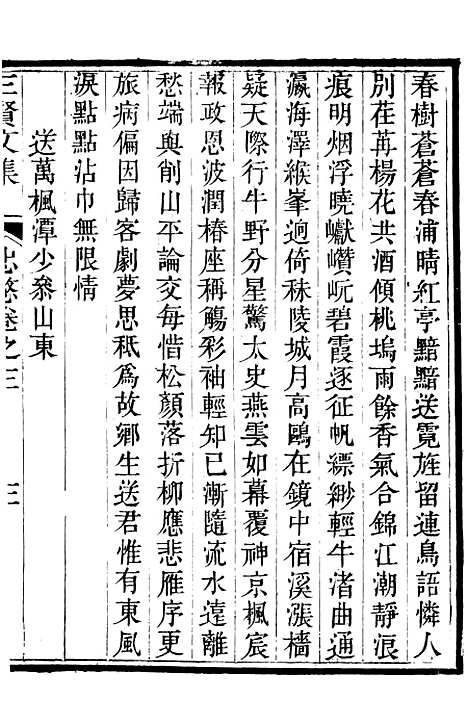 春樹蒼蒼春浦晴紅亭黯黯送霓旌留連鳥語憐人
別荏苒楊花共酒傾桃塢雨餘香氣合錦江潮靜浪
痕明烟浮曉巘巑岏碧霞逐征帆縹緲輕牛渚曲通
瀛海澤緱峯逈倚秣陵城月高鷗在鏡中宿溪漲檣
疑天際行牛野分星驚太史燕雲如幕覆神京楓宸
報政恩波潤椿座稱觴彩袖輕知已漸隨流水遠離
愁端與削山平論交每惜松顏落折柳應悲雁序更
旅病偏因歸客劇夢思秪為故鄉生送君惟有東風
淚點點沾巾無限情
送萬楓潭少叅山東
三賢文集
忠愍卷之三
三